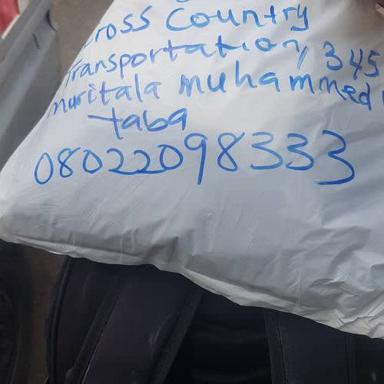 cross Country
Transportation, 345
muritala muhammed
taba
08022098333